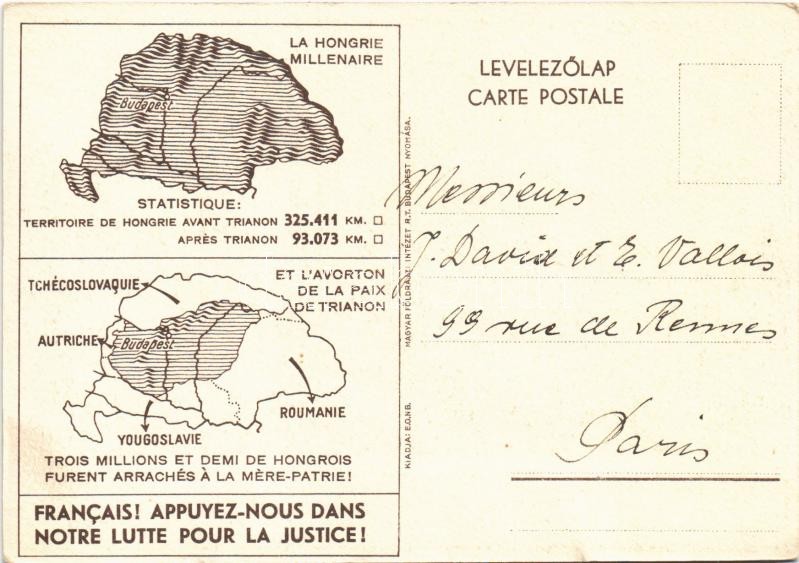 LA HONGRIE
MILLENAIRE
Budapest
STATISTIQUE:
TERRITOIRE DE HONGRIE AVANT TRIANON 325.411 KM. □
APRÈS TRIANON 93.073 KM. □
ET L'AVORTON
DE LA PAIX
DE TRIANON
TCHÉCOSLOVAQUIE
AUTRICHE
Budapest
ROUMANIE
YOUGOSLAVIE
TROIS MILLIONS ET DEMI DE HONGROIS
FURENT ARRACHÉS À LA MÈRE-PATRIE!
FRANÇAIS! APPUYEZ-NOUS DANS
NOTRE LUTTE POUR LA JUSTICE!
KIADJA: E.O.N.B. MAGYAR FÖLDRAJZI INTÉZET R.T. BUDAPEST NYOMÁSA.
LEVELEZŐLAP
CARTE POSTALE
Messieurs
J. David et E. Vallois
99 rue de Rennes
Paris